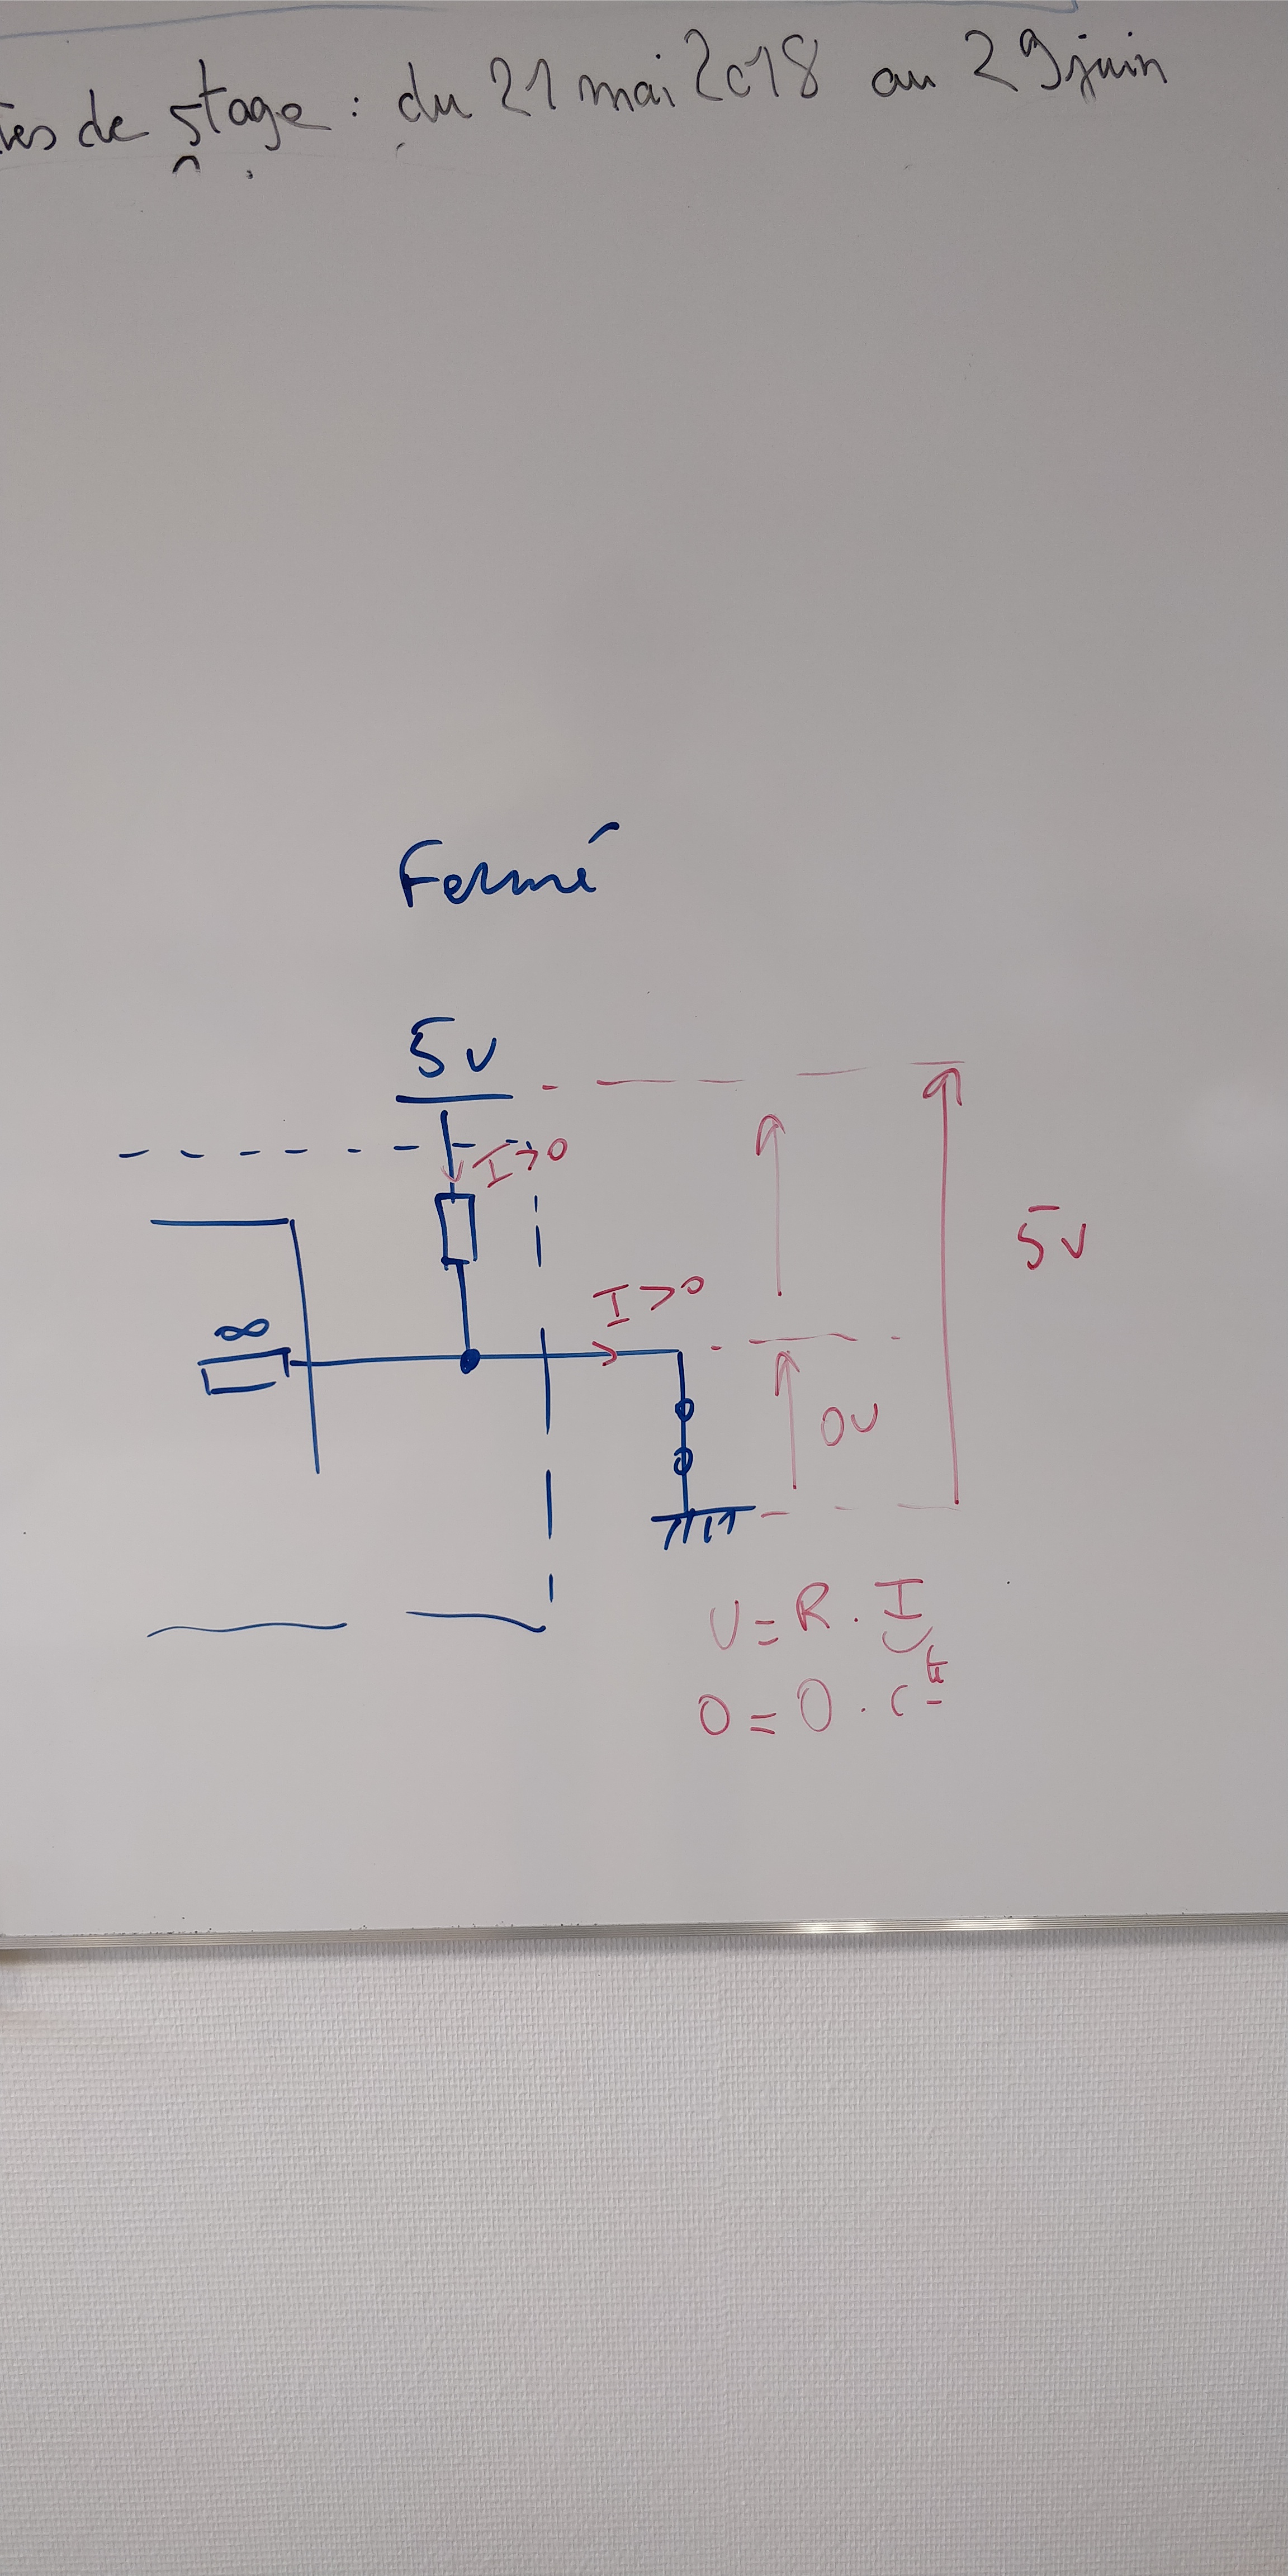 de stage : du 21 mai 2018 au 29 juin
Fermé
5v
I>0
5v
I>0
∞
0v
U = R . I
0 = 0 . c te